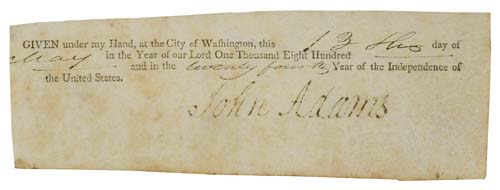 GIVEN under my Hand, at the City of Waſhington, this 13 the day of
May in the Year of our Lord One Thousand Eight Hundred
and in the twenty fourth Year of the Independence of
the United States.
John Adams